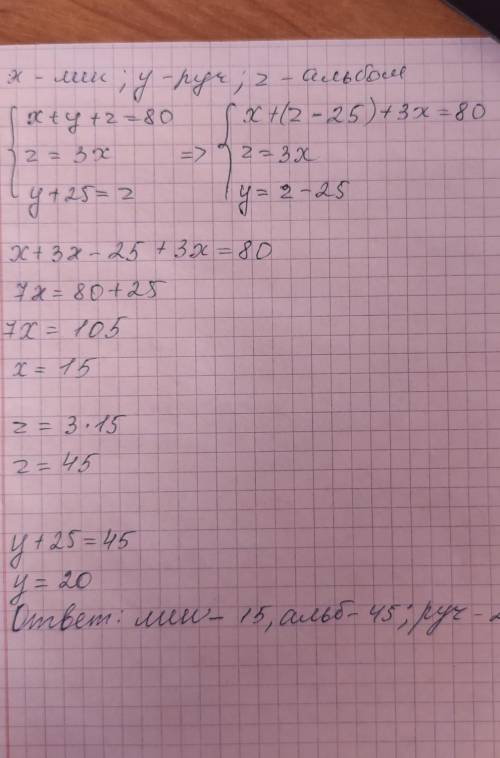 x - лин ; y - руч ; z - альбом
x + y + z = 80 => x + (z - 25) + 3x = 80
z = 3x z = 3x
y + 25 = z y = z - 25
x + 3x - 25 + 3x = 80
7x = 80 + 25
7x = 105
x = 15
z = 3 · 15
z = 45
y + 25 = 45
y = 20
Ответ: лин - 15, альб - 45; руч -